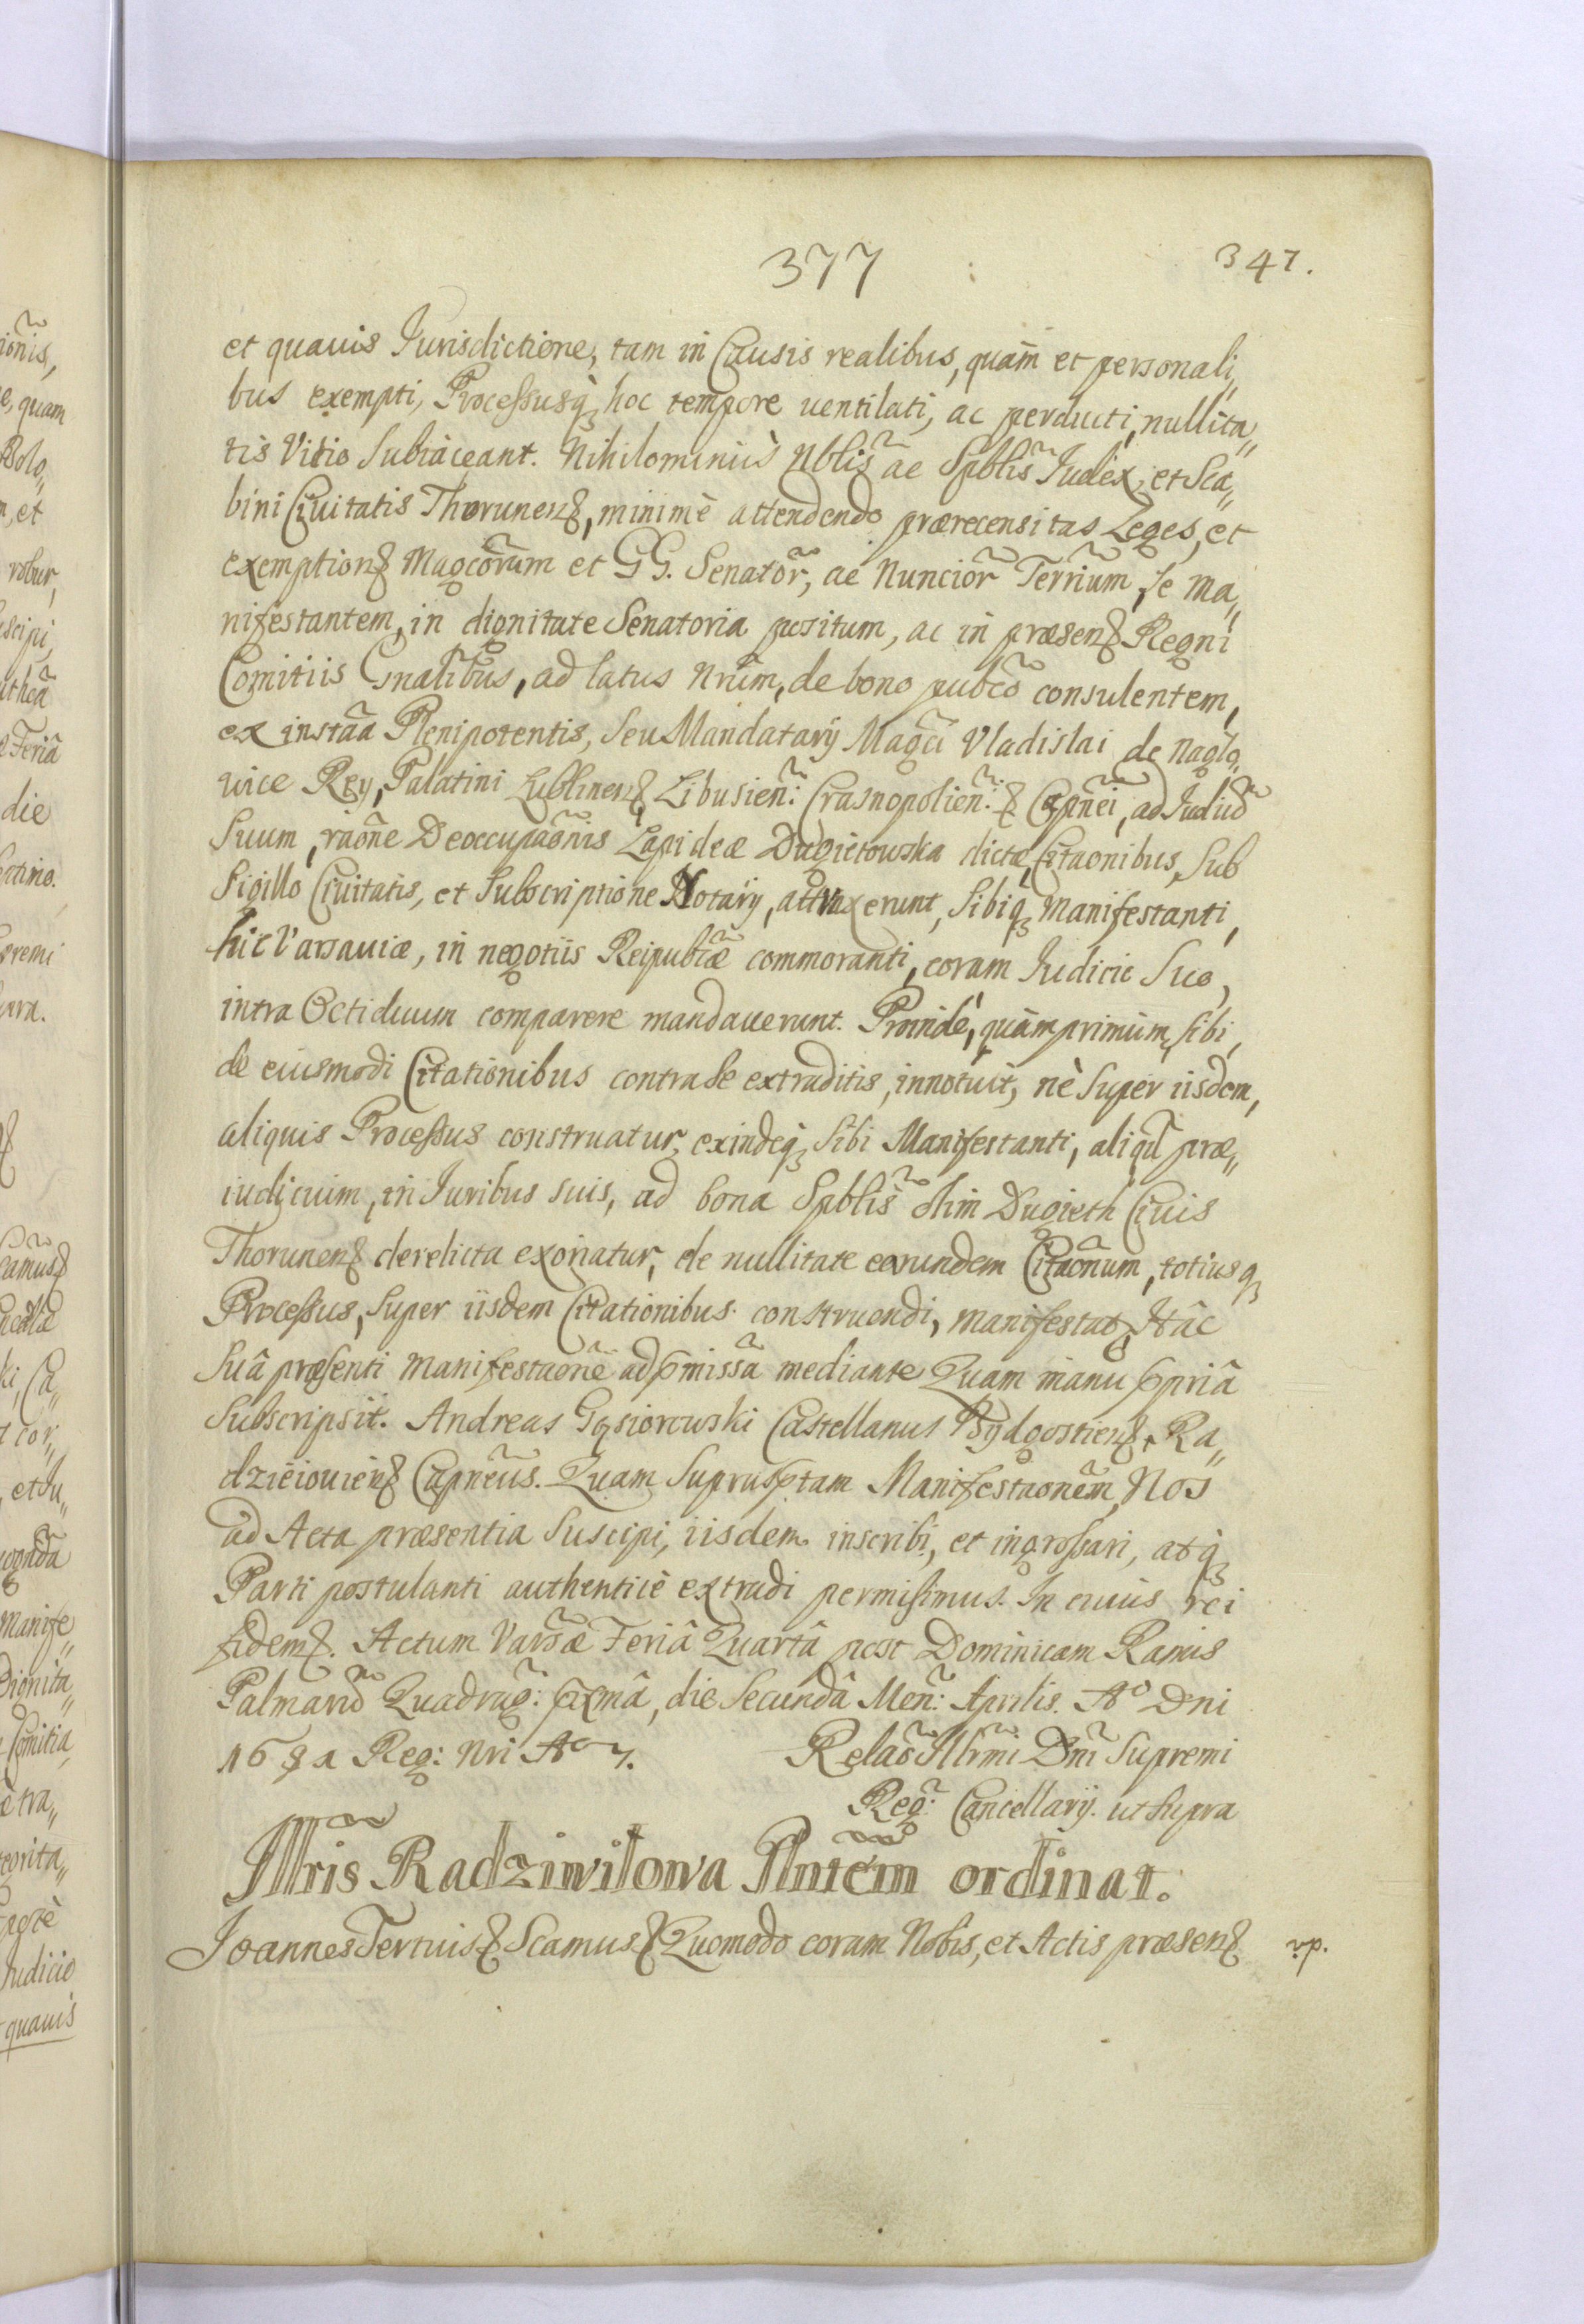 377 347.
et quavis Jurisdictione, tam in Causis realibus, quàm et personali„
bus exempti, Processusq hoc tempore ventilati, ac perducti, nullita„
tis Vitio Subiaceant. Nihilominùs Nblis ac Spblis Judex, et Sca„
bini Civitatis Thorunens, minimè attendendo prærecensitas Leges, et
exemptions Magcorum et GG. Senator, ac Nuncior Terrium, se ma„
nifestantem, in dignitate Senatoria positum, ac in præsens Regni
Comitiis Gnalibus, ad latus Nrum, de bono pubco consulentem,
ex instãa Plenipotentis, Seu Mandatarij Magci Vladislai de Naglo„
vice Rey, Palatini Lublinens, Libusien: Crasnopolien: & Capnei, ad Judud
Suum, raõne Deoccupaõnis Lapideæ Dugietowska dictæ, Citaonibus, Sub
Sigillo Civitatis, et Subscriptione Notarij, attraxerunt, Sibiq Manifestanti,
hic Varsaviæ, in negotiis Reipubcæ commoranti, coram Judicio Suo,
intra Octiduum comparere mandaverunt. Proindè, quàmprimùm, sibi,
de eiusmodi Citationibus contra Se extraditis, innotuit, nè Super iisdem,
aliquis Processus construatur, exindeq Sibi Manifestanti, aliqd præ„
iudicium, in Juribus suis, ad bona Spblis olim Dugieth Civis
Thorunens derelicta exoriatur, de nullitate earundem Citaõnum, totiusq
Processus, Super iisdem Citationibus construendi, manifestat, Hâc
Suâ præsenti Manifestaone ad pmissa mediante Quam manu ppriâ
Subscripsit. Andreas Gąsiorowski Castellanus Bydgostiens, Ra„
dzieioviens Capneus. Quam Suprasptam Manifestaonem, Nos
ad Acta præsentia Suscipi, iisdem inscribi, et ingrossari, atq
Parti postulanti authenticè extradi permisimus. In cuius rei
fidem &. Actum Varsæ Feriâ Quartâ post Dominicam Ramis
Palmaru Quadrag: pxmâ, die Secundâ Men: Aprilis. Ao Dni
1681 Reg: Nri Ao 7. Relaõ Illrmi Dni Supremi
Reg: Cancellarij. ut Supra
Illris Radziwiłowa Plntem ordinat.
Joannes Tertius & Scamus & Quomodo coram Nobis, et Actis præsens